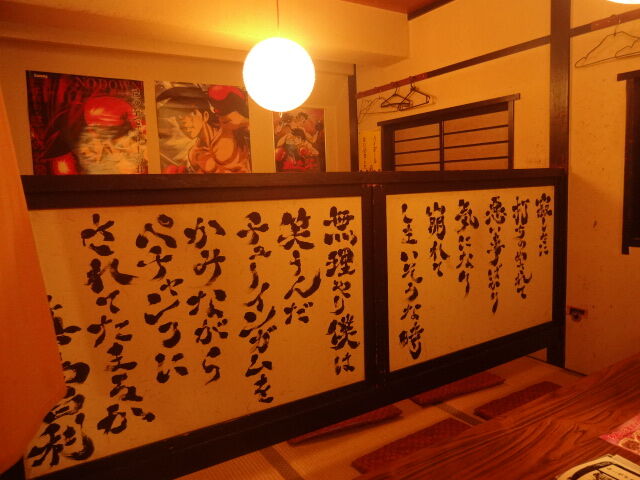 寂しさに
打ちのめされて
悪い事ばかり
気になり
崩れて
しまいそうな時
無理やり僕は
笑うんだ
チューインガムを
かみながら
ペチャンコに
されてたまるか
昌利